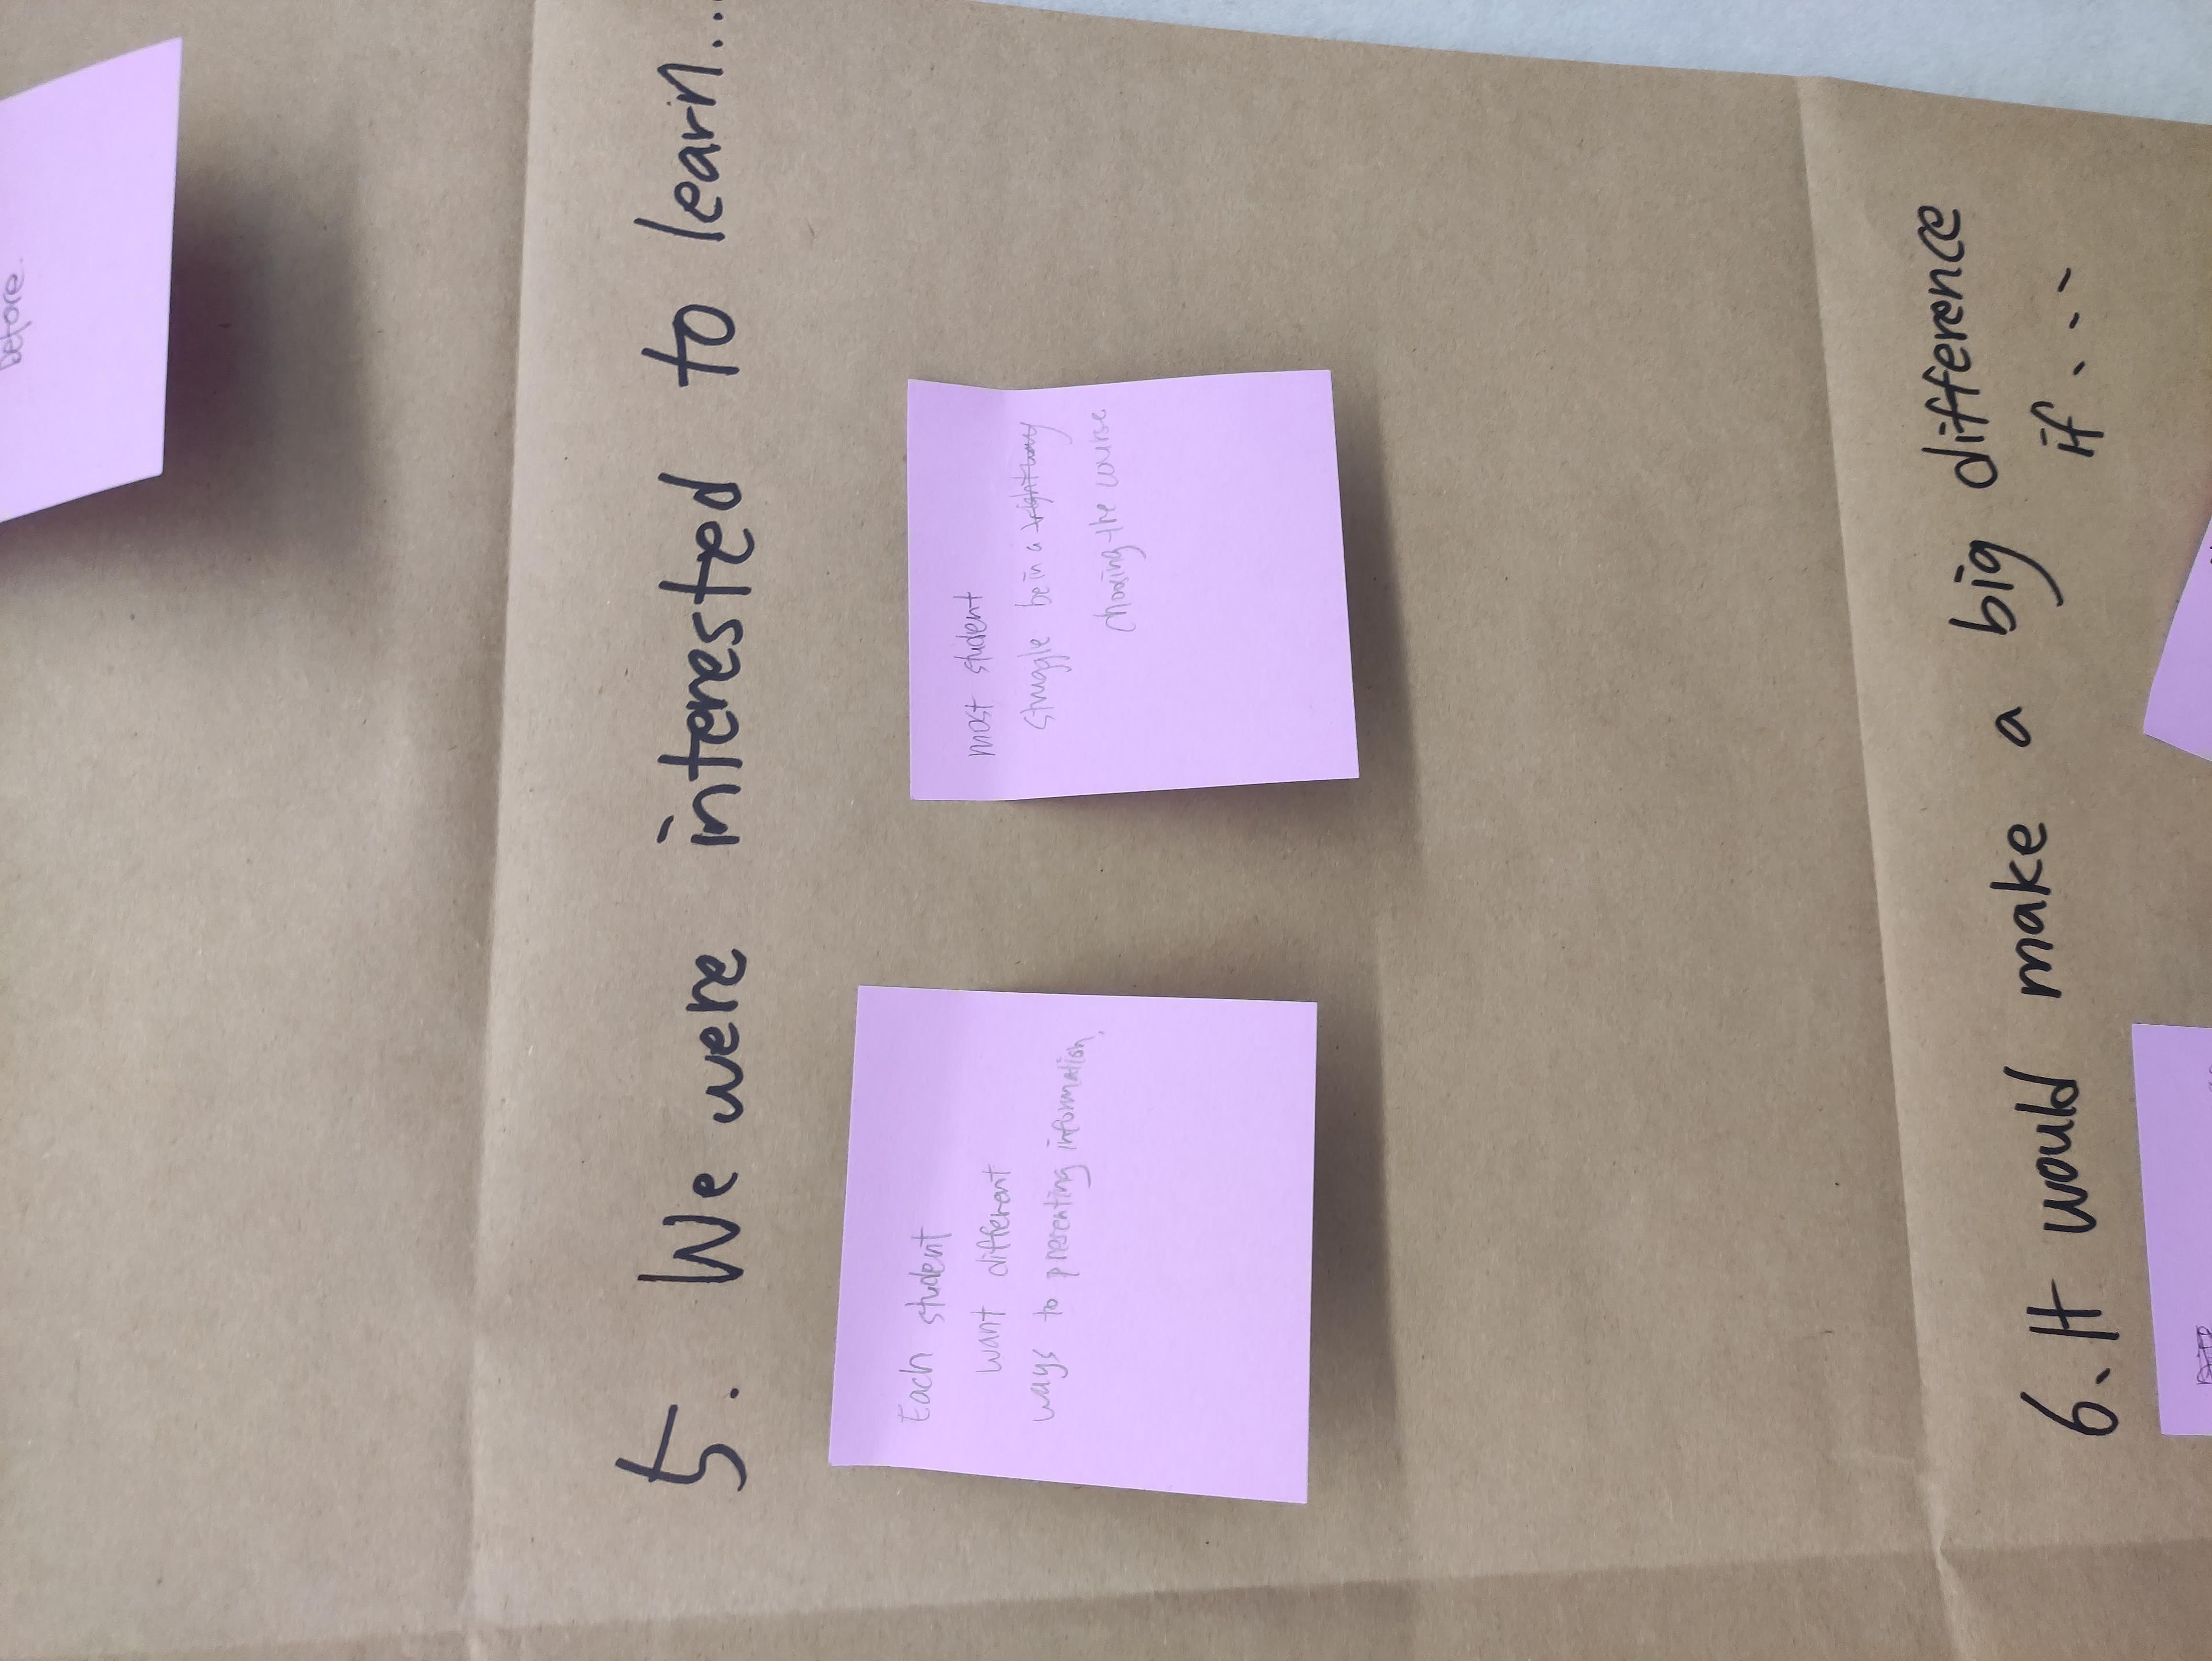 before.
5. We were interested to learn...
Each student
want different
ways to presenting information.
most student
struggle be in a right way
choosing the course
6. It would make a big difference
if...